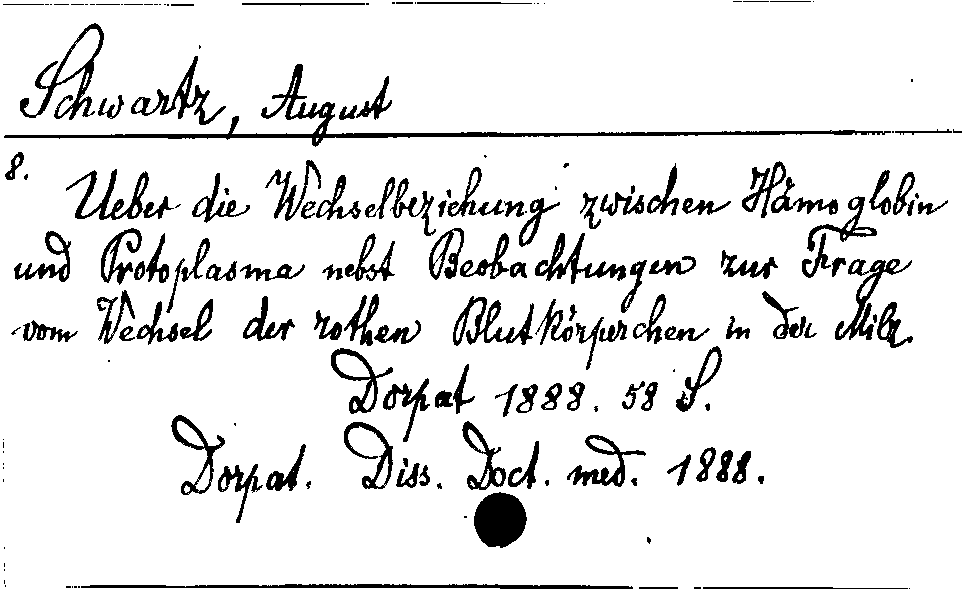 Schwartz, August
8.
Ueber die Wechselbeziehung zwischen Hämoglobin
und Protoplasma nebst Beobachtungen zur Frage
vom Wechsel der rothen Blutkörperchen in der Milz.
Dorpat 1888. 58 S.
Dorpat. Diss. Doct. med. 1888.